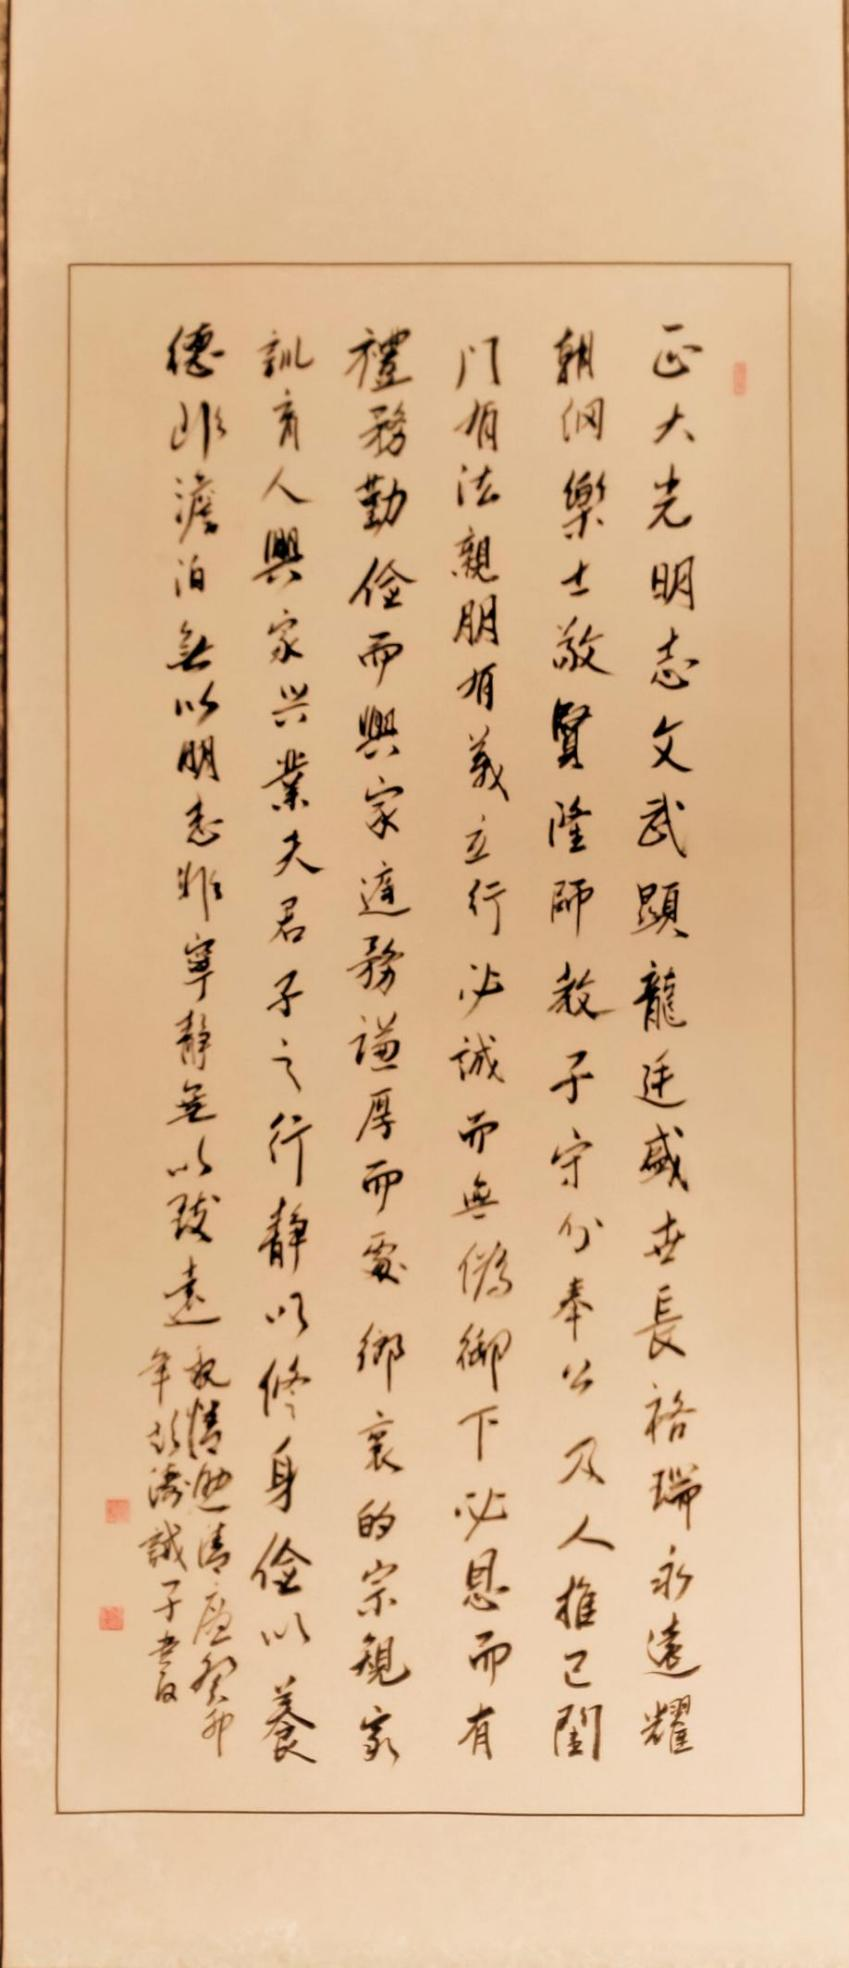 正大光明志文武顯龍廷盛世長裕瑞永遠耀
朝纲樂士敬賢隆師教子守分奉公及人推己閨
门有法親朋有義立行必誠而無偽御下必恩而有
禮務勤儉而興家庭務謙厚而處鄉裏的宗親家
訓育人興家兴業夫君子之行静以修身儉以養
德非澹泊無以明志非寧静無以致遠
癸卯
年 誠子書